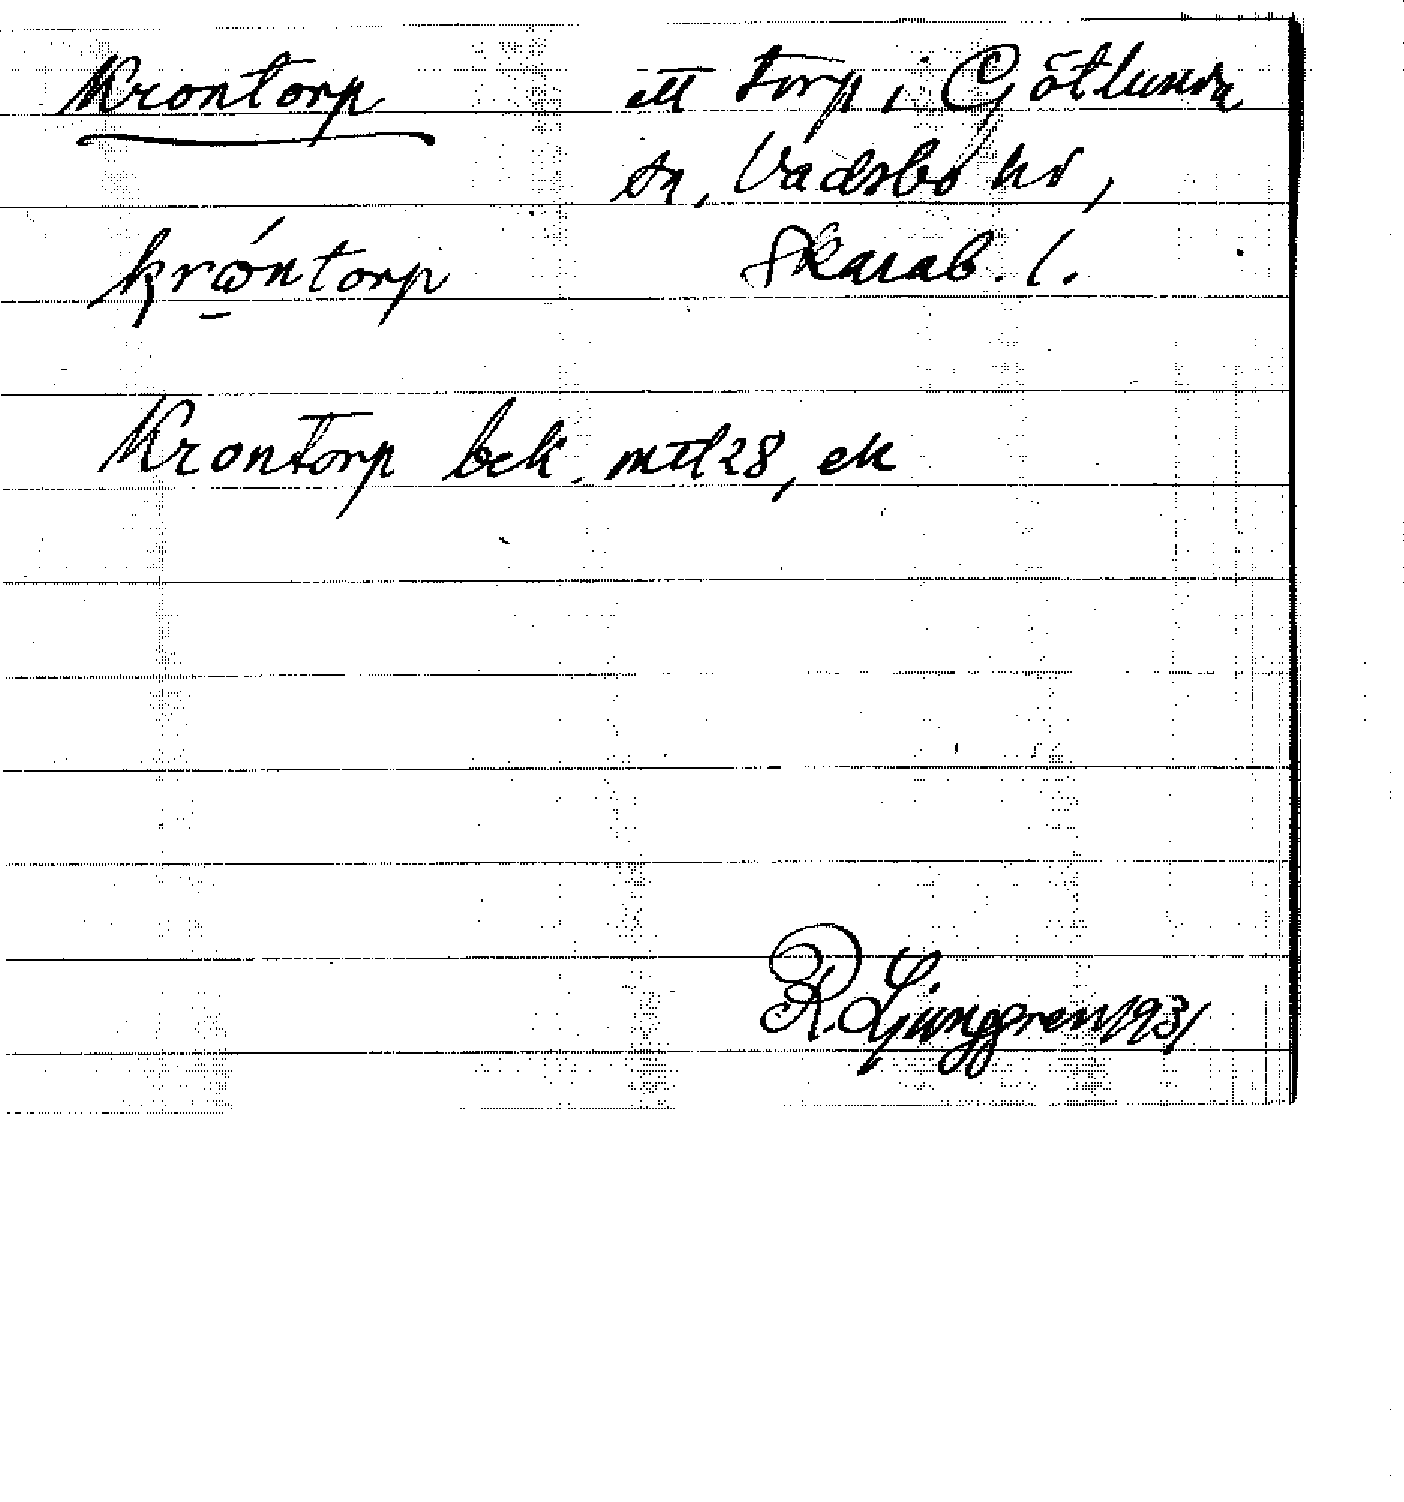 Krontorp ett torp i Götlunda
sn, Vadsbo hd,
krωntorp Skarab. l.
Krontorp bek. mtl 28, ek
R. Ljunggren 1931